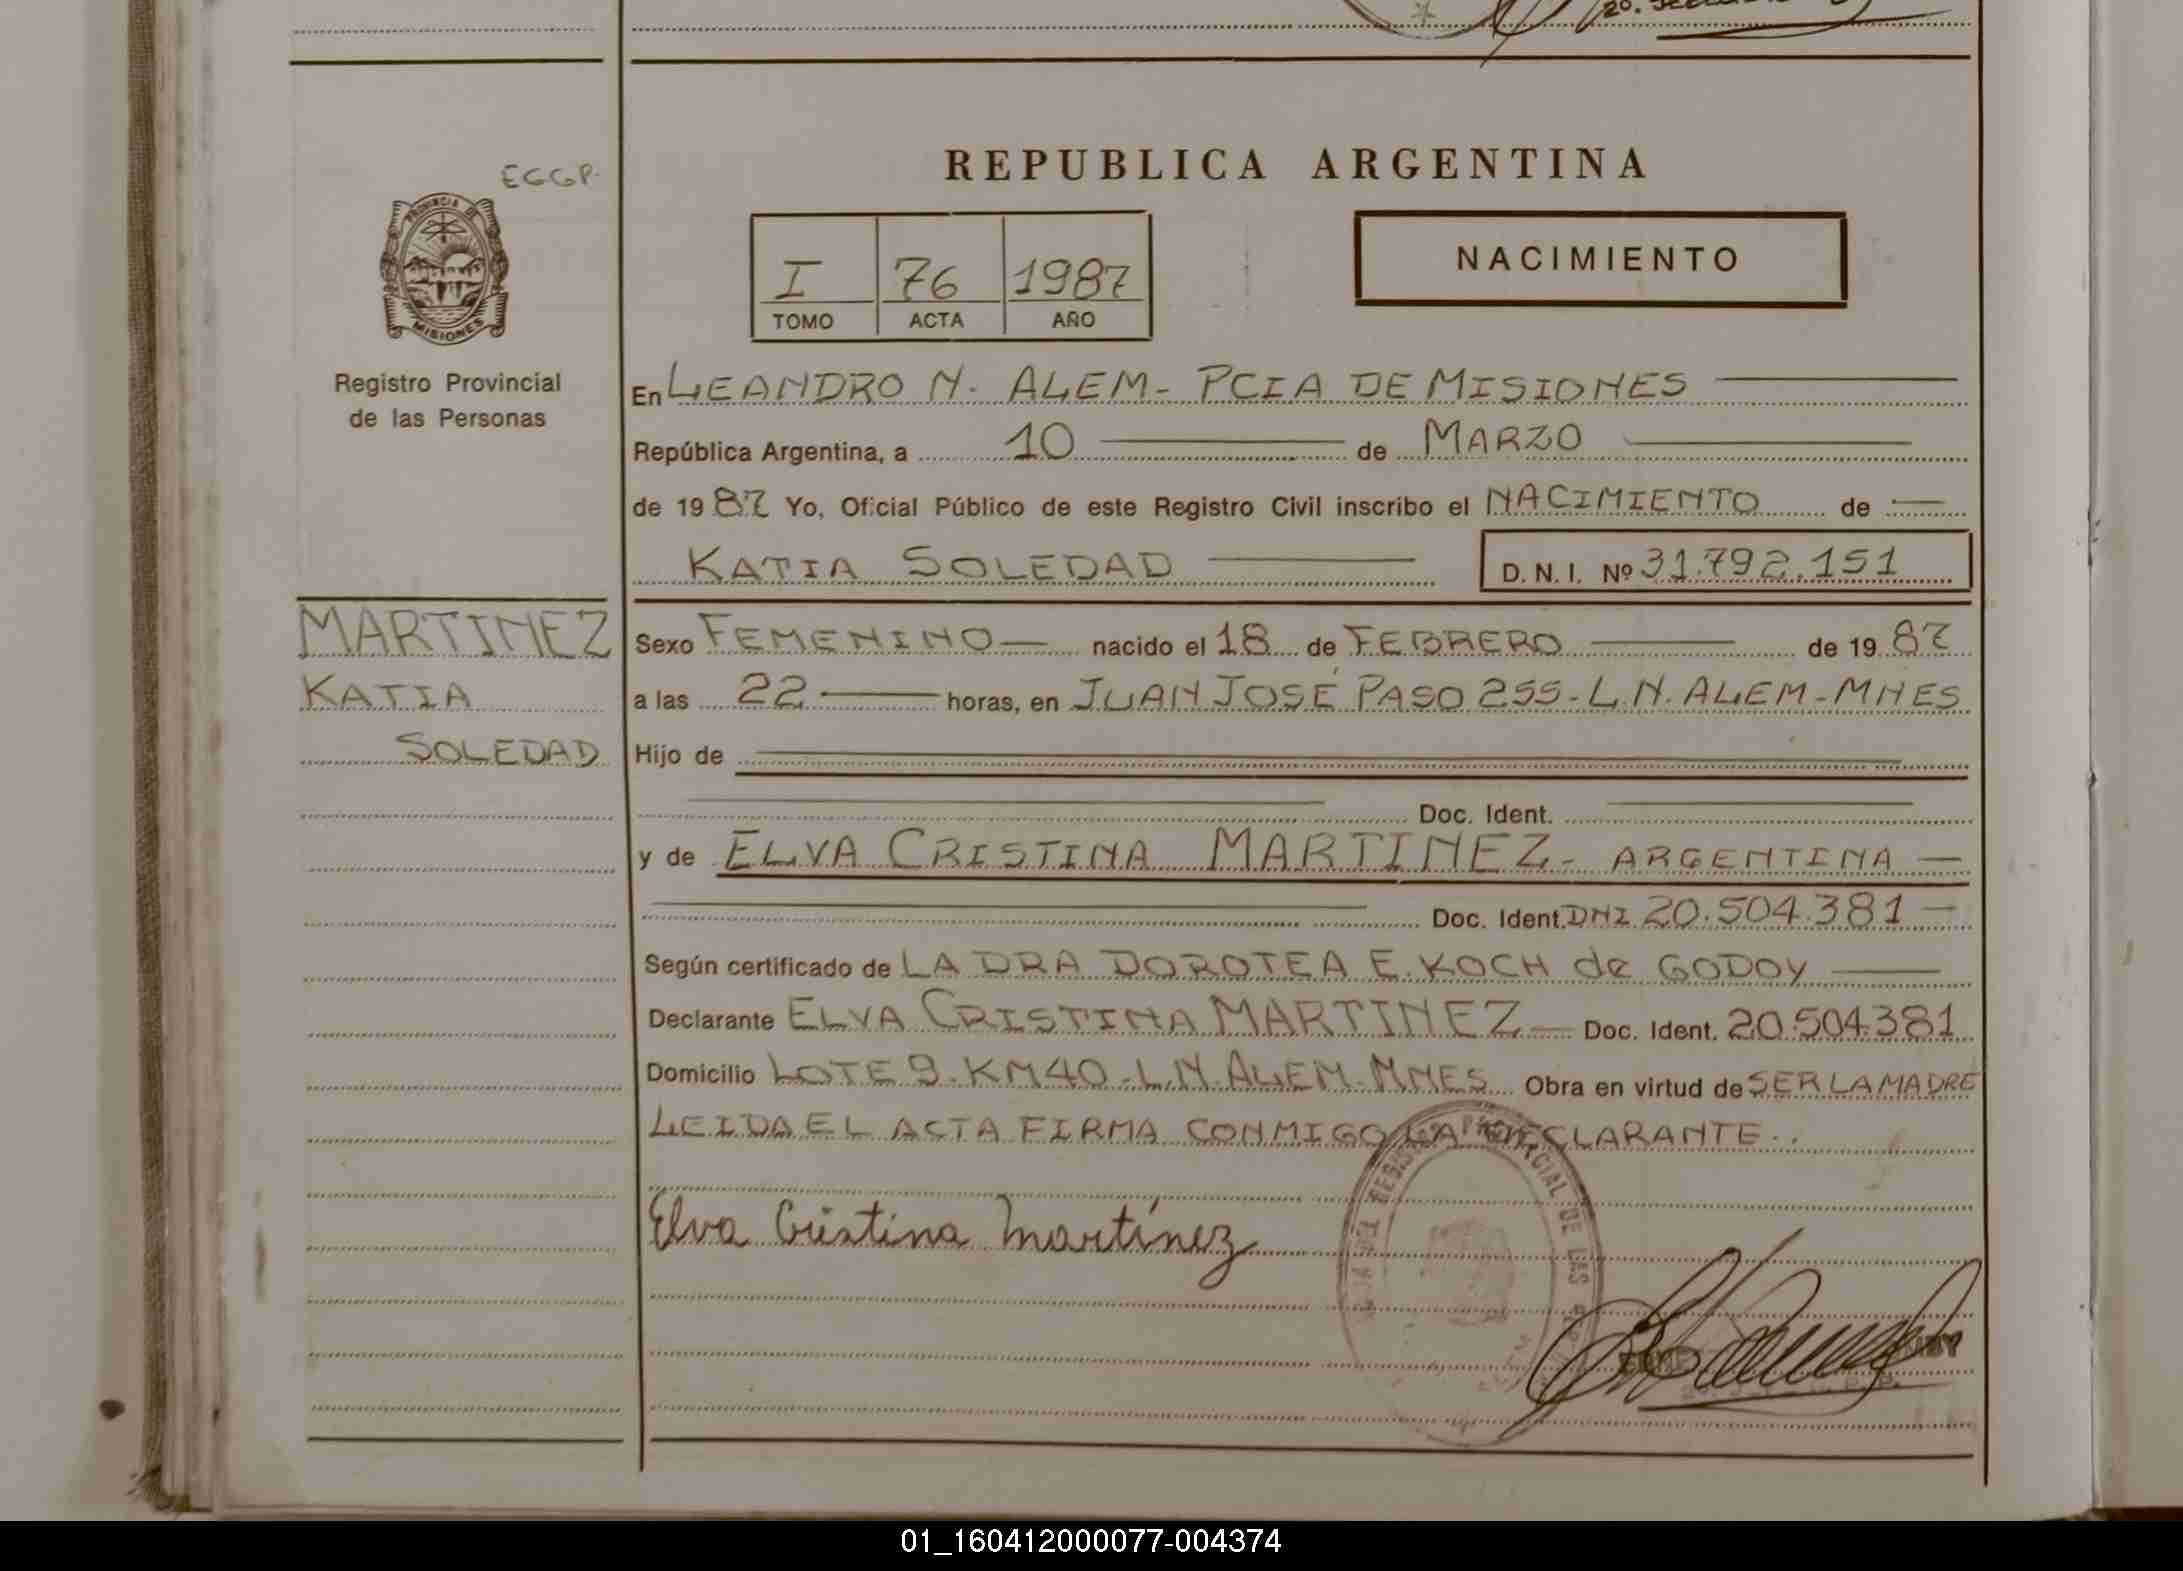 2o.
EGGP.
PROVINCIA DE
MISIONES
Registro Provincial
de las Personas
MARTINEZ
KATIA
SOLEDAD
REPUBLICA ARGENTINA
I 76 1987
TOMO ACTA AÑO
NACIMIENTO
En LEANDRO N. ALEM - PCIA DE MISIONES
República Argentina, a 10 de MARZO
de 1987 Yo, Oficial Público de este Registro Civil inscribo el NACIMIENTO de
KATIA SOLEDAD D.N.I. Nº 31.792.151
Sexo FEMENINO nacido el 18 de FEBRERO de 1987
a las 22 horas, en JUAN JOSÉ PASO 255 - L.N. ALEM - MNES
Hijo de
Doc. Ident.
y de ELVA CRISTINA MARTINEZ - ARGENTINA
Doc. Ident. DNI 20.504.381
Según certificado de LA DRA DOROTEA E. KOCH de GODOY
Declarante ELVA CRISTINA MARTINEZ Doc. Ident. 20.504.381
Domicilio LOTE 9 - KM 40 - L.N. ALEM - MNES Obra en virtud de SER LA MADRE
LEIDA EL ACTA FIRMA CONMIGO LA DECLARANTE..
Elva Cristina Martínez
DE LAS
01_160412000077-004374